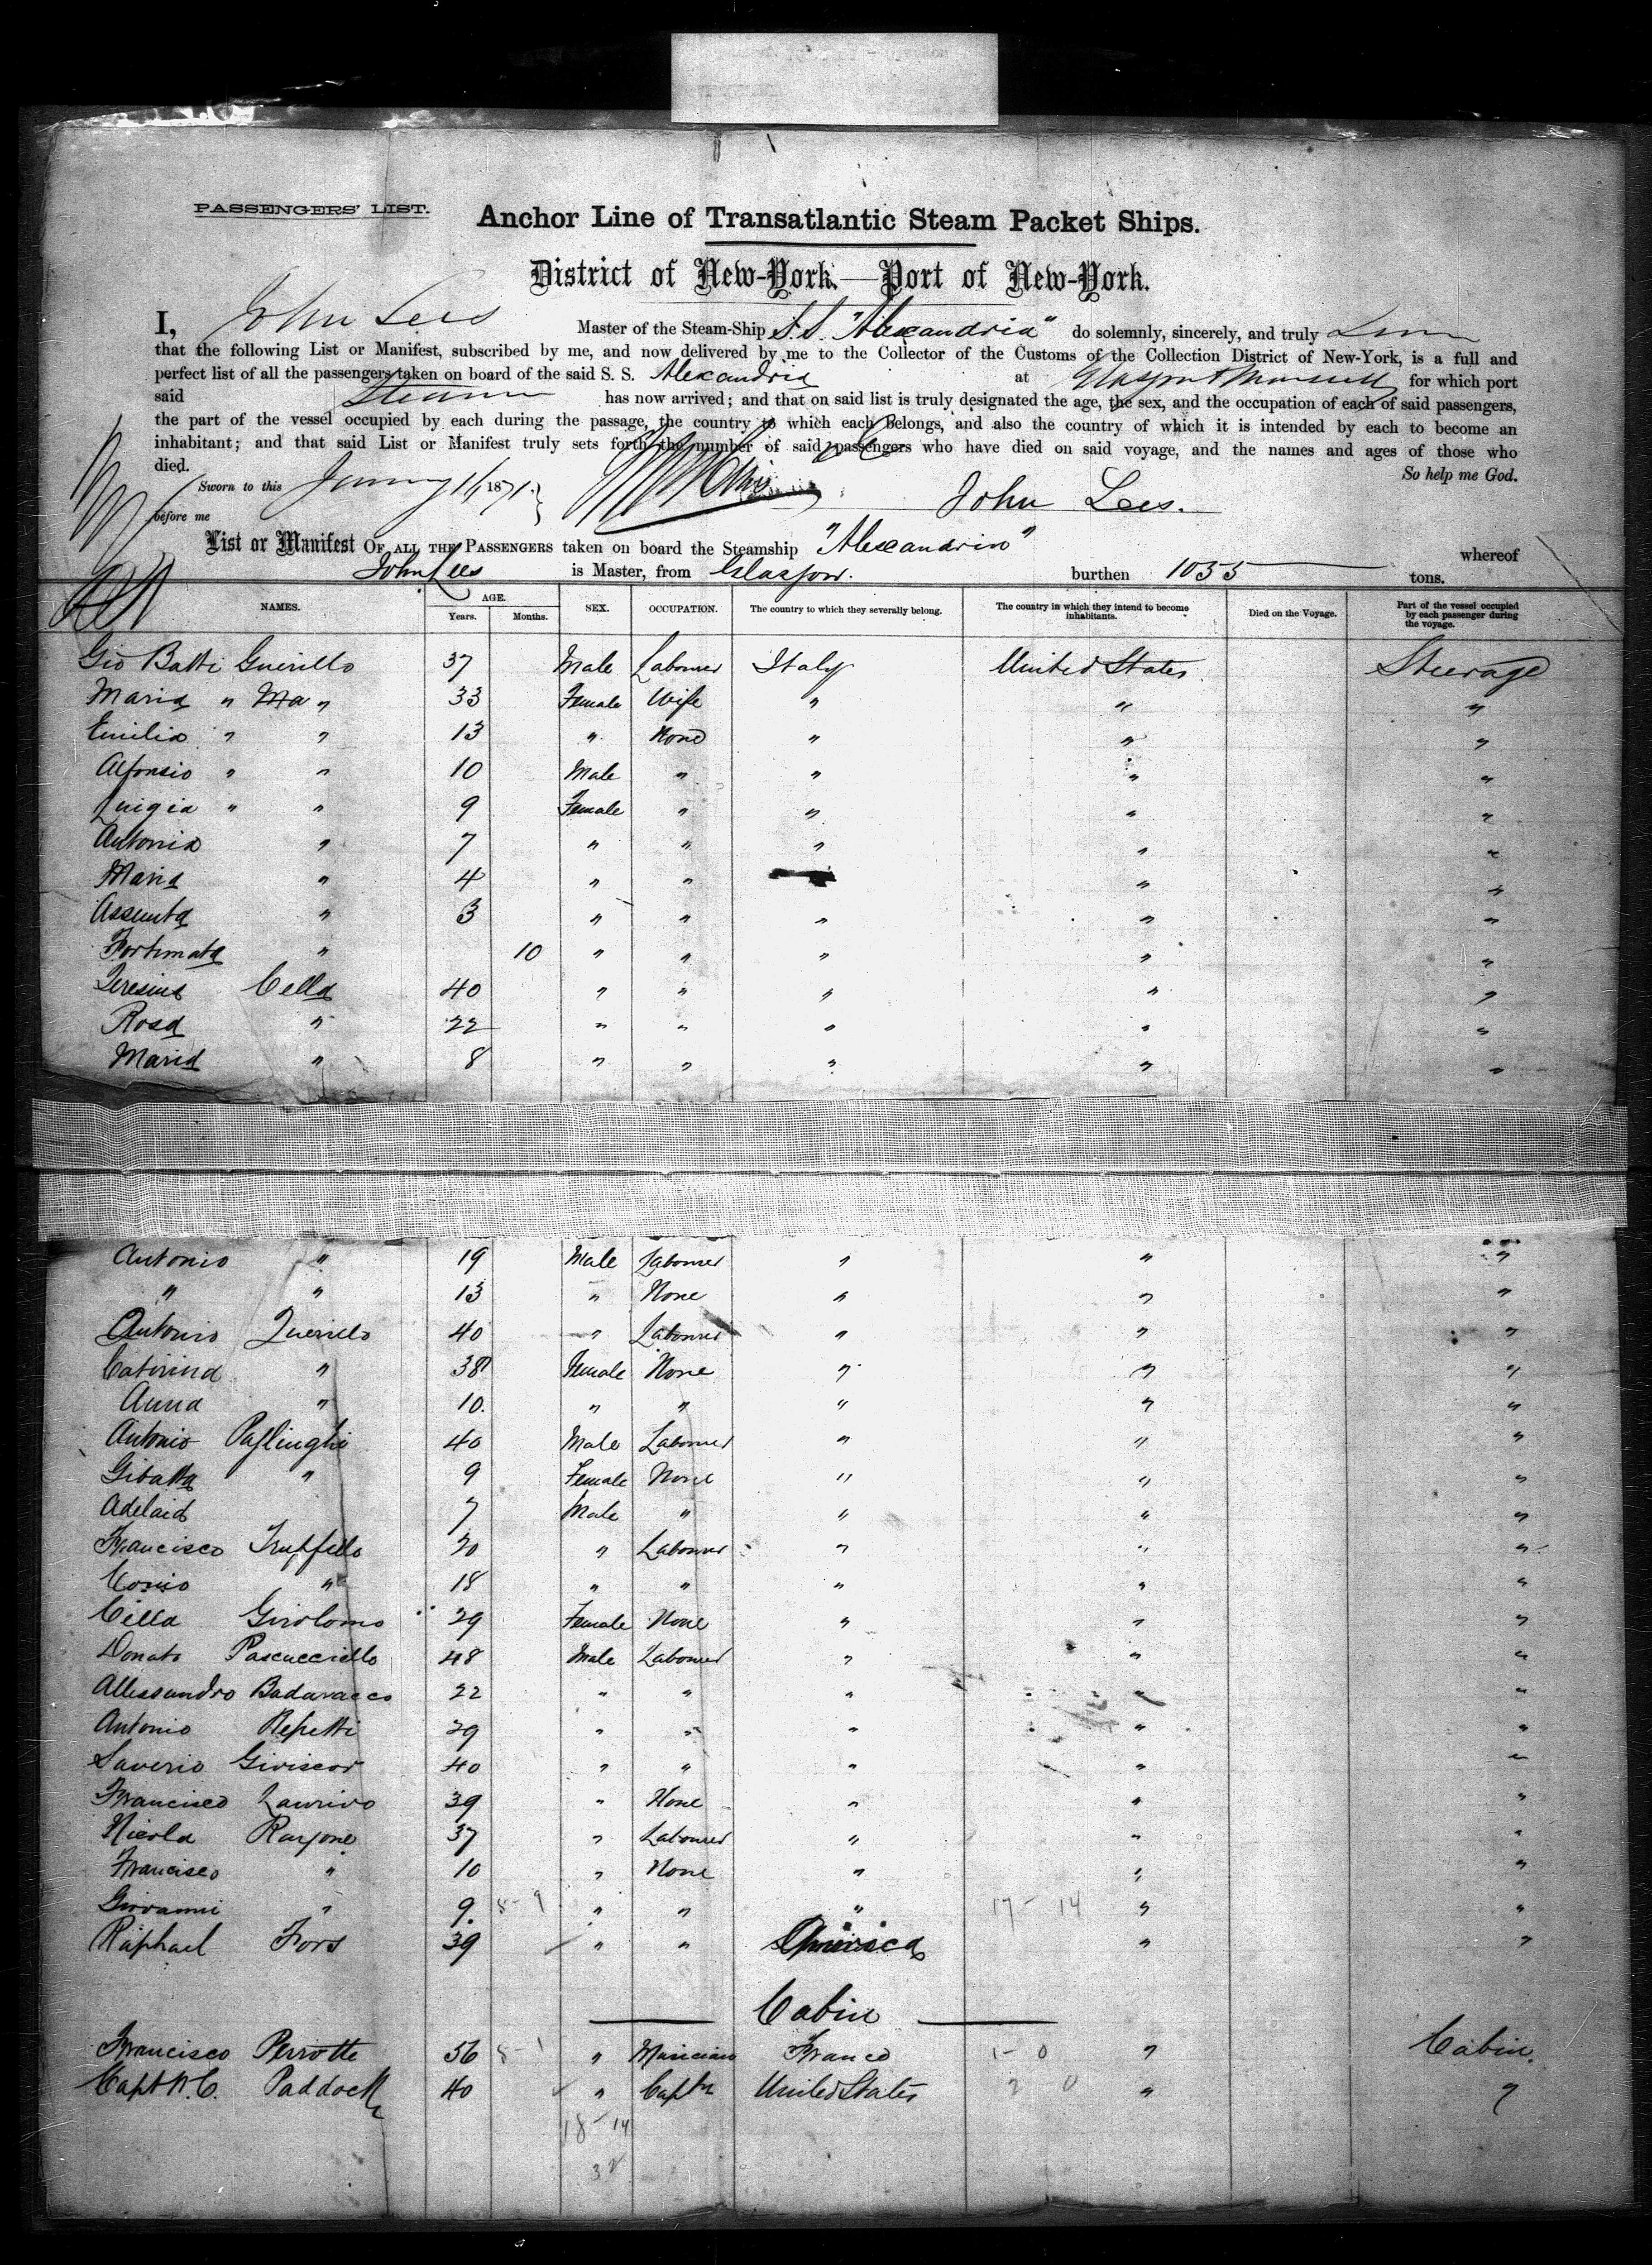 PASSENGERS' LIST.
Anchor Line of Transatlantic Steam Packet Ships.
District of New-York.—Port of New-York.
I, John Lees Master of the Steam-Ship S.S. "Alexandria" do solemnly, sincerely, and truly
that the following List or Manifest, subscribed by me, and now delivered by me to the Collector of the Customs of the Collection District of New-York, is a full and
perfect list of all the passengers taken on board of the said S. S. Alexandria at Glasgow for which port
said Steamer has now arrived; and that on said list is truly designated the age, the sex, and the occupation of each of said passengers,
the part of the vessel occupied by each during the passage, the country to which each belongs, and also the country of which it is intended by each to become an
inhabitant; and that said List or Manifest truly sets forth the number of said passengers who have died on said voyage, and the names and ages of those who
died. So help me God.
Sworn to this 1871. John Lees.
before me
List or Manifest OF ALL THE PASSENGERS taken on board the Steamship "Alexandria" whereof
John Lees is Master, from Glasgow. burthen 1055 tons.
NAMES. AGE. Years. Months. SEX. OCCUPATION. The country to which they severally belong. The country in which they intend to become inhabitants. Died on the Voyage. Part of the vessel occupied by each passenger during the voyage.
Gio Batti Guerillo 37 Male Labourer Italy United States Steerage
Maria " Ma " 33 Female Wife " " "
Emilia " " 13 " None " " "
Alfonsio " " 10 Male " " " "
Luigia " " 9 Female " " " "
Antonia " 7 " " " " "
Maria " 4 " " " "
Assunta " 3 " " " " "
Fortunata " 10 " " " " "
Teresina Cella 40 " " " " "
Rosa " 22 " " " " "
Maria " 8 " " " " "
Antonio " 19 Male Labourer " " "
" " 13 " None " " "
Antonio Querillo 40 " Labourer " " "
Catirina " 38 Female None " " "
Anna " 10. " " " " "
Antonio 40 Male Labourer " " "
Gibatta " 9 Female None " " "
Adelaid 7 Male " " " "
Francisco Truffello 20 " Labourer " " "
" 18 " " " " "
Cella Girolomo 29 Female None " " "
Donato Pascucciello 48 Male Labourer " " "
Allessandro Badaracco 22 " " " " "
Antonio Repetti 29 " " " " "
Saverio 40 " " " " "
Francisco Laurino 39 " None " " "
Nicola Rayone 37 " Labourer " " "
Francisco " 10 " None " " "
Giovanni " 9. " " " 17 - 14 " "
Raphael Fors 39 " " America " "
Cabin
Francisco Perrotte 56 " Musician France 1 - 0 " Cabin.
Capt W.C. Paddock 40 " Captn United States 2 0 " "
18 - 14
32